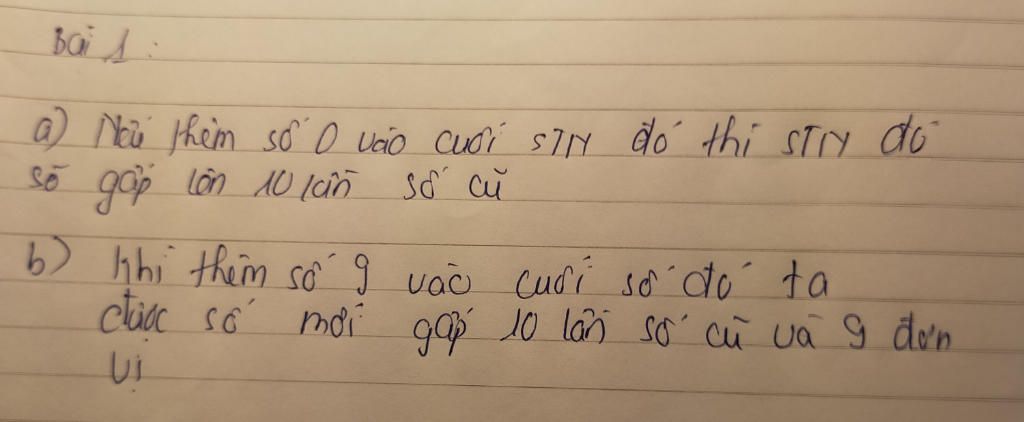 Bài 1 :
a) Nếu thêm số 0 vào cuối STN đó thì STN đó
sẽ gấp lên 10 lần số cũ
b) Khi thêm số 9 vào cuối số đó ta
được số mới gấp 10 lần số cũ và 9 đơn
vị